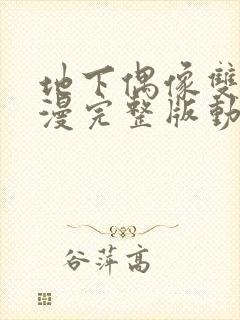 地下偶像雙
漫完整版動
谷萍高